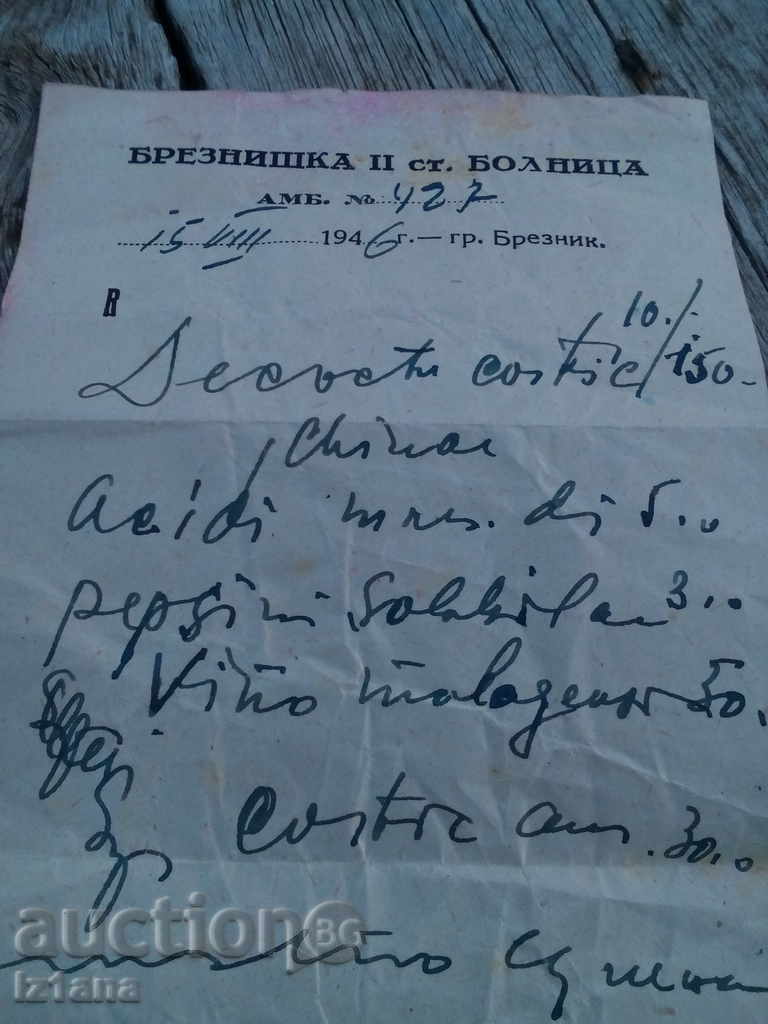 БРЕЗНИШКА II ст. БОЛНИЦА
АМБ. № 427
15 VIII 1946 г. — гр. Брезник.
R
Decocti cortic 10./150.
Chinae
Acidi mur. di 5..
pepsini 3..
Vino malagense 50.
Syr cortic aur. 30..
auction BG
iz1ana